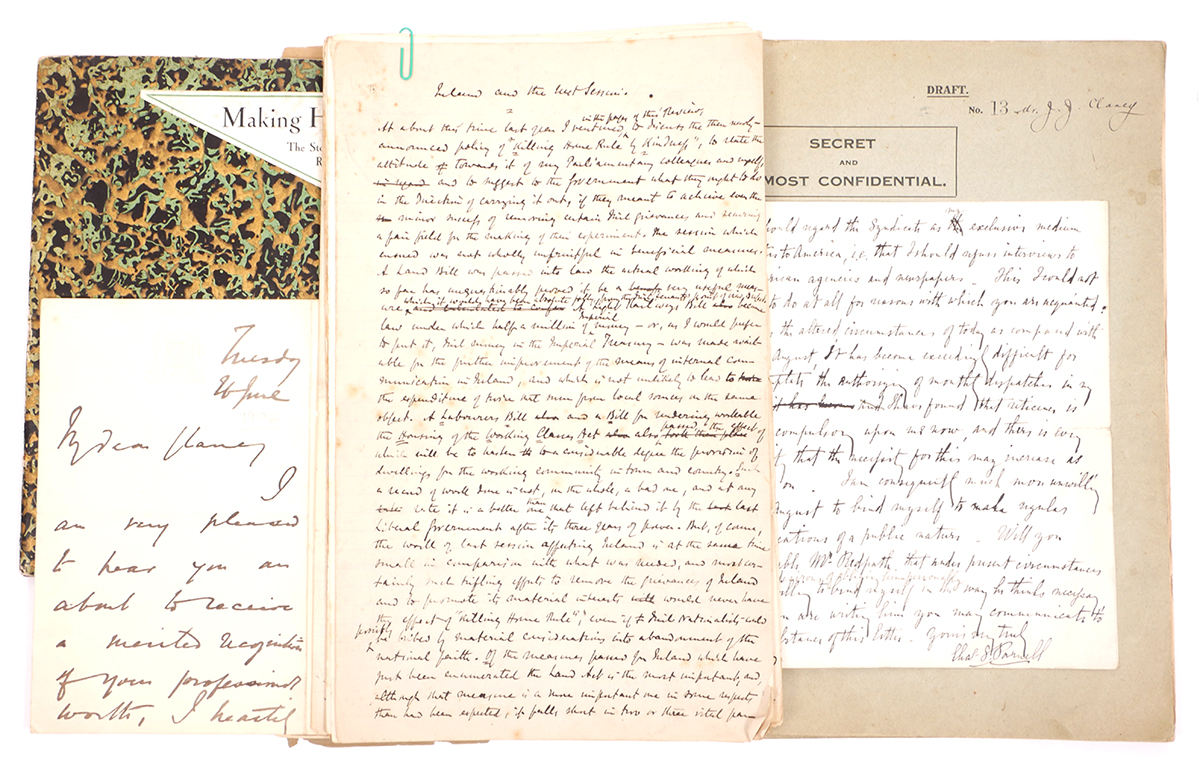 Making H
The Sto
R
Tuesday
26 June
My dear Clancy
I
am very pleased
to hear you are
about to receive
a merited recognition
of your professional
worth, I heartily
Ireland and the next Session.
in the pages of this Review,
At about this time last year I ventured, to discuss the then newly-
announced policy of "Killing Home Rule by Kindness", to state the
attitude towards it of my Parliamentary colleagues and myself,
and to suggest to the Government what they ought to do
in the direction of carrying it out, if they meant to achieve even the
minor success of removing certain Irish grievances and securing
a fair field for the making of their experiment. The session which
ensued was not wholly unfruitful in beneficial measures.
A Land Bill was passed into law the actual working of which
so far has unquestionably proved it to be a very useful mea-
sure, A Railways Bill also became
Imperial
law under which half a million of money – or, as I would prefer
to put it, Irish money in the Imperial Treasury – was made avail-
able for the further improvement of the means of internal com-
munication in Ireland, and which is not unlikely to lead to
the expenditure of twice as much more from local sources on the same
object. A Labourers Bill and a Bill for rendering workable
passed the effect of
the Housing of the Working Classes Act also
which will be to hasten to a considerable degree the provision of
dwellings for the working community in town and country. Such
a record of work done is not, on the whole, a bad one, and at any
rate it is a better one than that left behind it by the last
Liberal Government after its three years of power. But, of course,
the work of last session affecting Ireland is at the same time
small in comparison with what was needed, and most cer-
tainly such trifling efforts to remove the grievances of Ireland
and to promote its material interests would never have
the effect of "Killing Home Rule", even if the Irish Nationalists could
possibly
be bribed by material considerations into abandonment of the
national faith. Of the measures passed for Ireland which have
just been enumerated the Land Act is the most important, and,
although that measure is a more important one in some respects
than had been expected, it falls short in two or three vital par-
DRAFT.
No. 13 Mr. J. J. Clancy
SECRET
AND
MOST CONFIDENTIAL.
my
ould regard the Syndicate as exclusive medium
to America, i.e. that I should refuse interviews to
rican agencies and newspapers – This I would not
to do at all for reasons with which you are acquainted.
the altered circumstances of today as compared with
August, it has become exceedingly difficult for
the authorizing of monthly dispatches in my
and I have found that reticence is
compulsory upon me now, and there is every
that the necessity for this may increase as
on. I am consequently much more unwilling
August to bind myself to make regular
cations of a public nature – Will you
Mr Redpath that under present circumstances
to bind myself in the way he thinks necessary
writing him you may communicate to
bstance of this letter – Yours very truly
Chas. S. Parnell